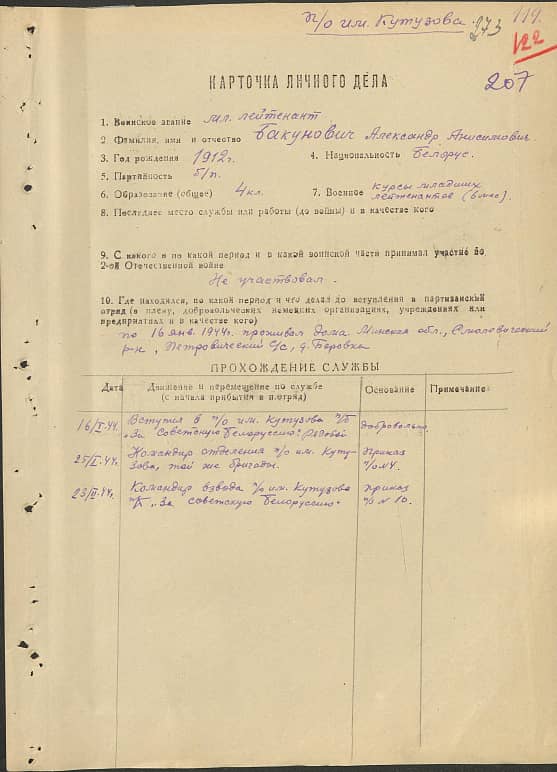 п/о им. Кутузова
273
119.
122
207
КАРТОЧКА ЛИЧНОГО ДЕЛА
1. Воинское звание мл. лейтенант
2. Фамилия, имя и отчество Бакунович Александр Анисимович
3. Год рождения 1912 г. 4. Национальность Белорус.
5. Партийность б/п.
6. Образование (общее) 4 кл. 7. Военное курсы младших
лейтенантов (6 мес).
8. Последнее место службы или работы (до войны) и в качестве кого
9. С какого и по какой период и в какой воинской части принимал участие во
2-ой Отечественной войне
Не участвовал.
10. Где находился, по какой период и что делал до вступления в партизанский
отряд (в плену, добровольческих немецких организациях, учреждениях или
предприятиях и в качестве кого)
по 16 янв. 1944г. проживал дома Минская обл., Смолевический
р-н, Петровический С/с, д. Беровка
ПРОХОЖДЕНИЕ СЛУЖБЫ
Дата Движение и перемещение по службе Основание Примечание
(с начала прибытия в п/отряд)
16/I-44. Вступил в п/о им. Кутузова п/б добровольно
"За Советскую Белоруссию". Рядовой
25/I-44г. Командир отделения п/о им. Куту- Приказ
зова, той же бригады. п/о №4.
23/II-44г. Командир взвода п/о им. Кутузова приказ
"За советскую Белоруссию" п/о № 10.